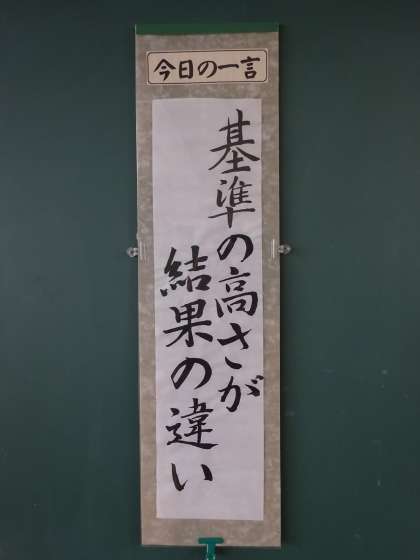 今日の一言
基準の高さが
結果の違い